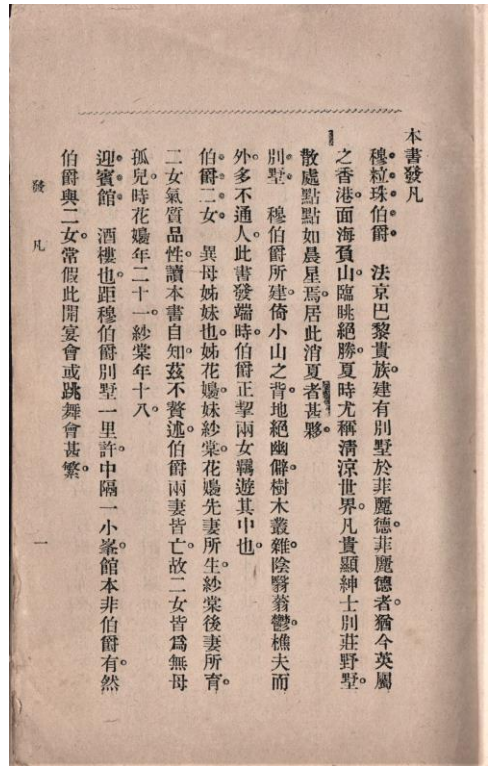 本書發凡
穆粒珠伯爵　法京巴黎貴族建有別墅於菲麗德。菲麗德者猶今英屬
之香港。面海負山。臨眺絕勝。夏時尤稱清涼世界。凡貴顯紳士別莊野墅。
散處點點如晨星焉。居此消夏者甚夥。
別墅　穆伯爵所建倚小山之背地絕幽僻樹木叢雜陰翳蓊鬱。樵夫而
外。多不通人。此書發端時。伯爵正挈兩女羈遊其中也。
伯爵二女　異母姊妹也。姊花嬝。妹紗棠。花嬝先妻所生。紗棠後妻所育。
二女氣質品性。讀本書自知。茲不贅述。伯爵兩妻皆亡。故二女皆爲無母
孤兒。時花嬝年二十一。紗棠年十八。
迎賓館　酒樓也。距穆伯爵別墅一里許。中隔一小峯。館本非伯爵有。然
伯爵與二女。常假此開宴會或跳舞會甚繁。
發凡
一